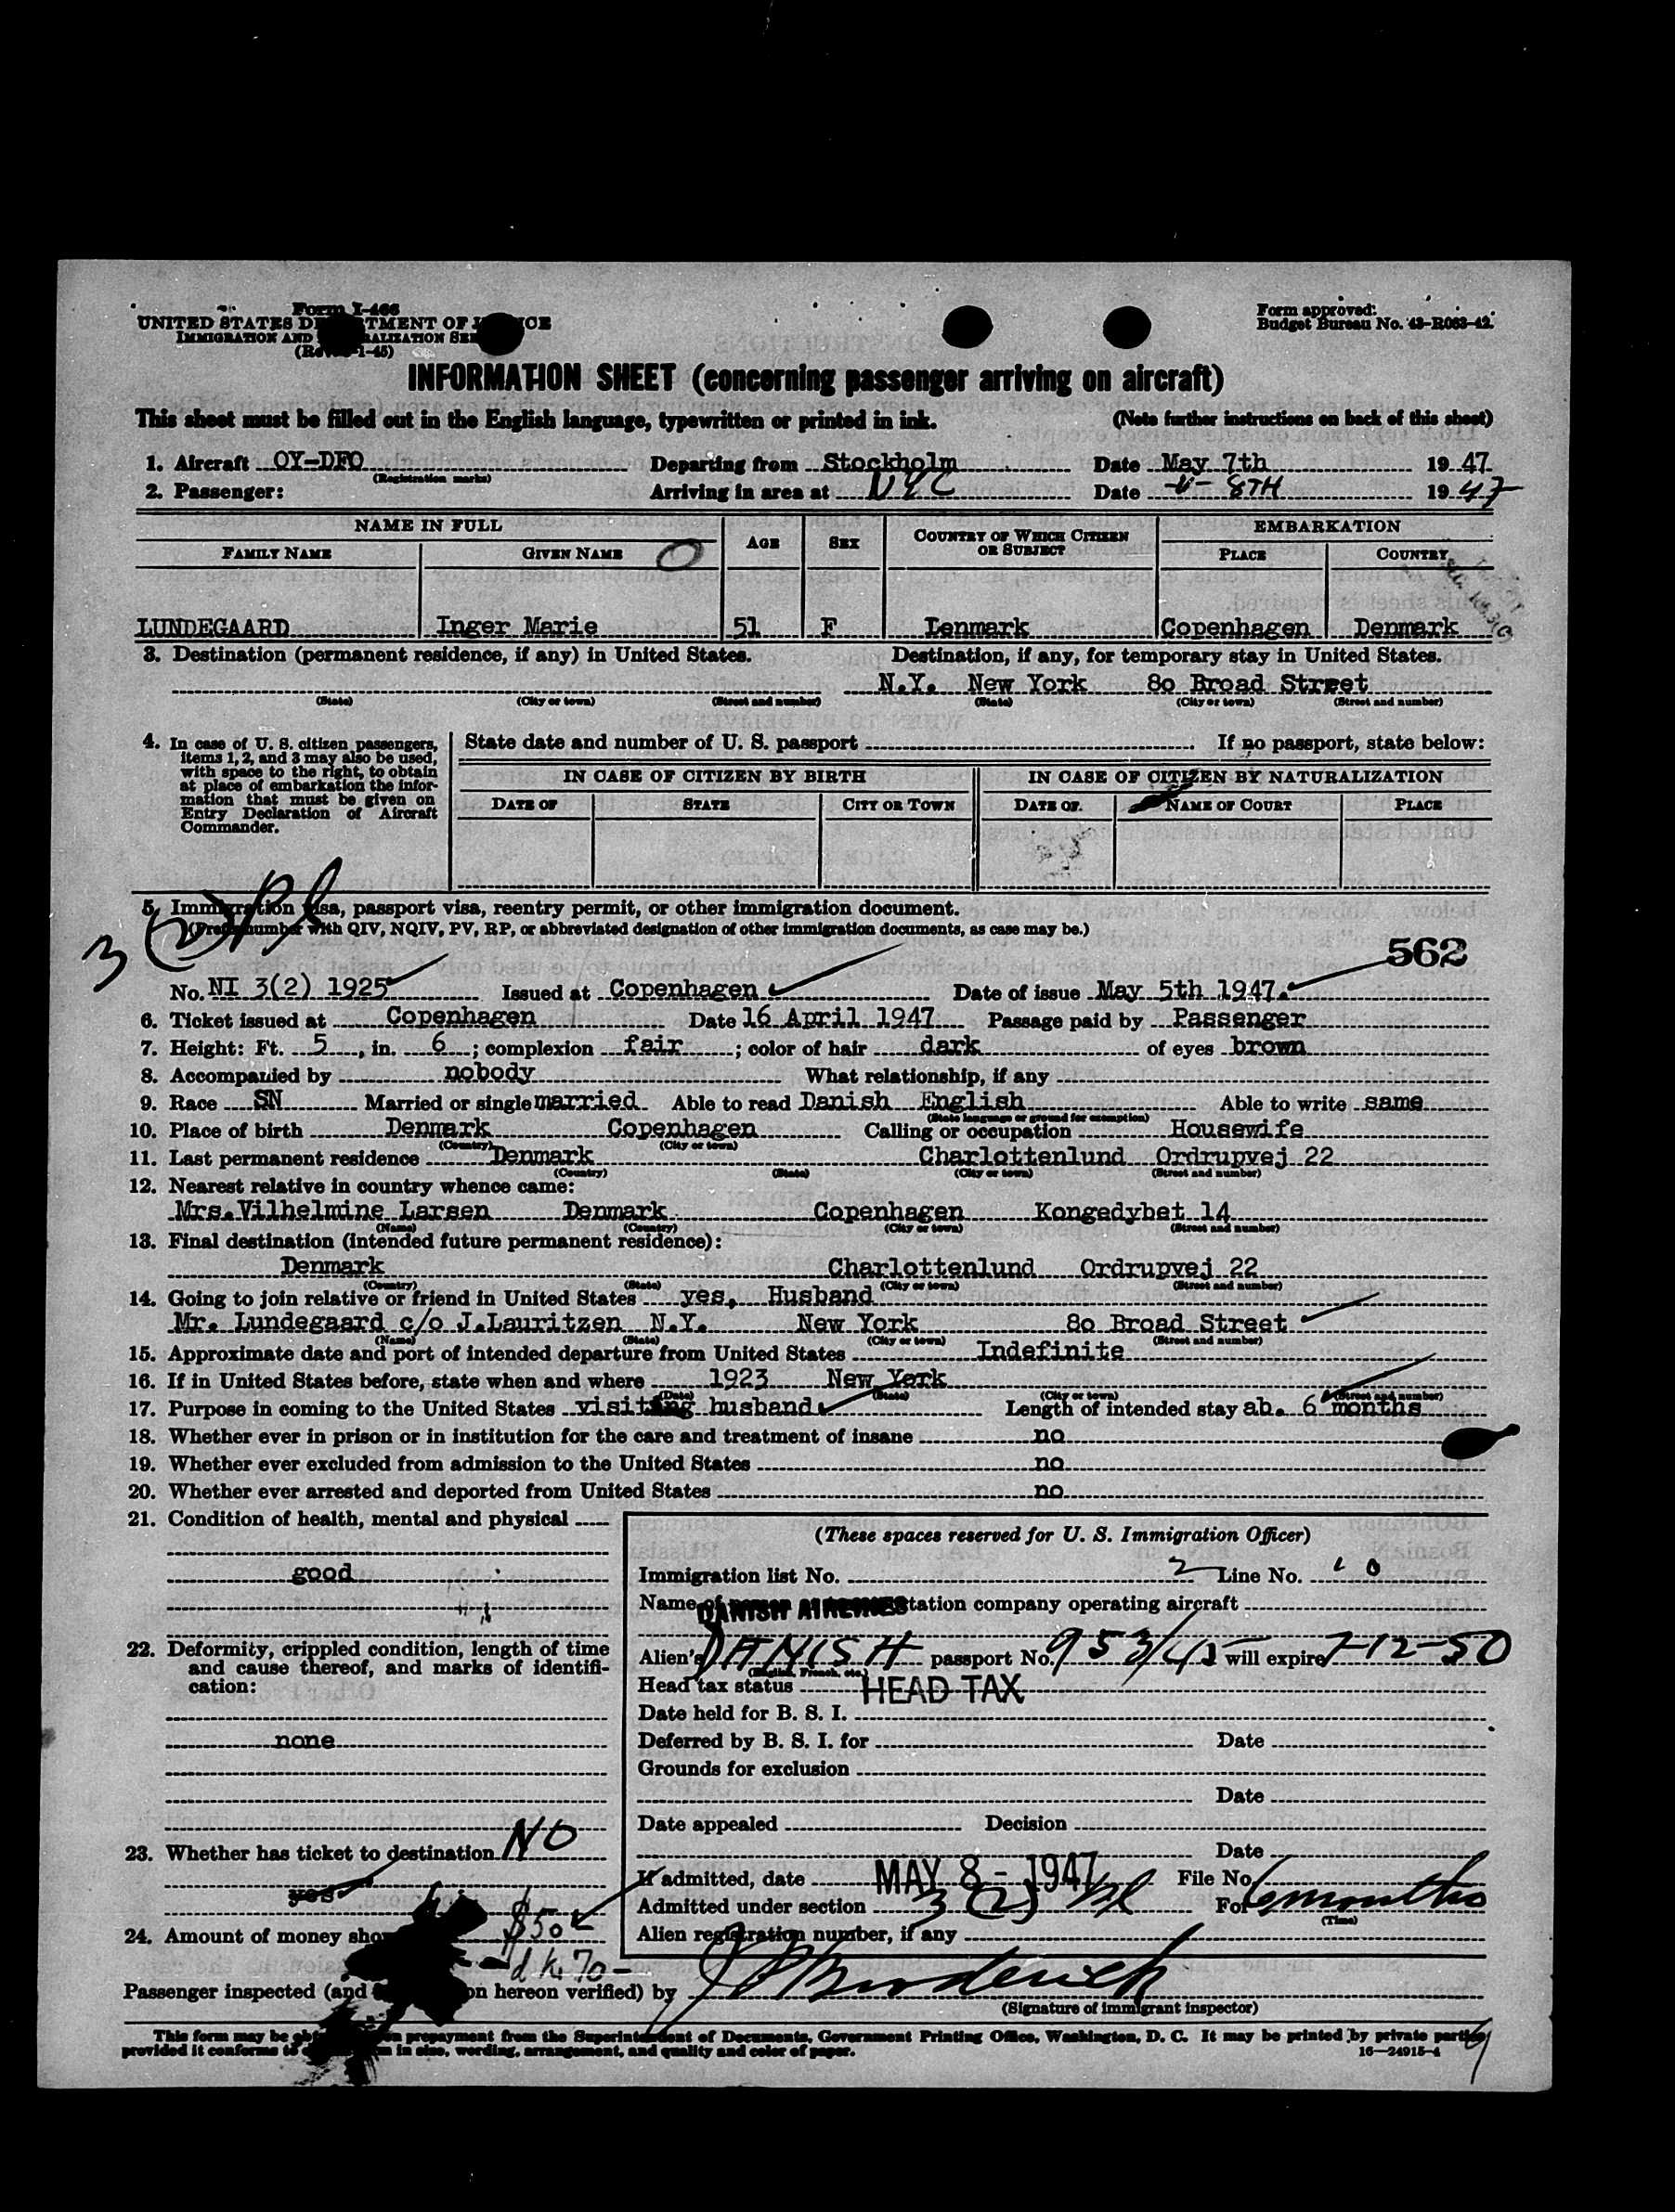 Form I-466
UNITED STATES DEPARTMENT OF JUSTICE
IMMIGRATION AND NATURALIZATION SERVICE
(Rev. 1-45)
Form approved:
Budget Bureau No. 43-R063-42.
INFORMATION SHEET (concerning passenger arriving on aircraft)
This sheet must be filled out in the English language, typewritten or printed in ink. (Note further instructions on back of this sheet)
1. Aircraft OY-DFO Departing from Stockholm Date May 7th 1947
(Registration marks)
2. Passenger: Arriving in area at NYC Date V- 8TH 1947
NAME IN FULL AGE SEX COUNTRY OF WHICH CITIZEN OR SUBJECT EMBARKATION
FAMILY NAME GIVEN NAME PLACE COUNTRY
LUNDEGAARD Inger Marie 51 F Denmark Copenhagen Denmark
3. Destination (permanent residence, if any) in United States. Destination, if any, for temporary stay in United States.
N.Y. New York 80 Broad Street
(State) (City or town) (Street and number) (State) (City or town) (Street and number)
4. In case of U. S. citizen passengers, items 1, 2, and 3 may also be used, with space to the right, to obtain at place of embarkation the information that must be given on Entry Declaration of Aircraft Commander.
State date and number of U. S. passport If no passport, state below:
IN CASE OF CITIZEN BY BIRTH IN CASE OF CITIZEN BY NATURALIZATION
DATE OF STATE CITY OR TOWN DATE OF NAME OF COURT PLACE
5. Immigration visa, passport visa, reentry permit, or other immigration document.
(Prefix number with QIV, NQIV, PV, RP, or abbreviated designation of other immigration documents, as case may be.)
3 (2) Pl
562
No. NI 3(2) 1925 Issued at Copenhagen Date of issue May 5th 1947.
6. Ticket issued at Copenhagen Date 16 April 1947 Passage paid by Passenger
7. Height: Ft. 5, in. 6; complexion fair; color of hair dark of eyes brown
8. Accompanied by nobody What relationship, if any
9. Race SN Married or single married Able to read Danish English Able to write same
(State language or ground for exemption)
10. Place of birth Denmark Copenhagen Calling or occupation Housewife
(Country) (City or town)
11. Last permanent residence Denmark Charlottenlund Ordrupvej 22
(Country) (State) (City or town) (Street and number)
12. Nearest relative in country whence came:
Mrs.Vilhelmine Larsen Denmark Copenhagen Kongedybet 14
(Name) (Country) (City or town) (Street and number)
13. Final destination (intended future permanent residence):
Denmark Charlottenlund Ordrupvej 22
(Country) (State) (City or town) (Street and number)
14. Going to join relative or friend in United States yes, Husband
Mr. Lundegaard c/o J.Lauritzen N.Y. New York 80 Broad Street
(Name) (State) (City or town) (Street and number)
15. Approximate date and port of intended departure from United States Indefinite
16. If in United States before, state when and where 1923 New York
(Date) (State) (City or town) (Street and number)
17. Purpose in coming to the United States visiting husband Length of intended stay ab. 6 months
18. Whether ever in prison or in institution for the care and treatment of insane no
19. Whether ever excluded from admission to the United States no
20. Whether ever arrested and deported from United States no
21. Condition of health, mental and physical
good
22. Deformity, crippled condition, length of time and cause thereof, and marks of identification:
none
23. Whether has ticket to destination NO
yes
24. Amount of money shown $50
d kr 70-
(These spaces reserved for U. S. Immigration Officer)
Immigration list No. 2 Line No. 10
Name of transportation company operating aircraft
DANISH AIRLINES
Alien's DANISH passport No. 953/45 will expire 7-12-50
(English, French, etc.)
Head tax status HEAD TAX
Date held for B. S. I.
Deferred by B. S. I. for Date
Grounds for exclusion
Date
Date appealed Decision
Date
If admitted, date MAY 8 - 1947 File No.
Admitted under section 3 (2) Pl For 6 months
(Time)
Alien registration number, if any
Passenger inspected (and information hereon verified) by J Broderick
(Signature of immigrant inspector)
This form may be obtained upon prepayment from the Superintendent of Documents, Government Printing Office, Washington, D. C. It may be printed by private parties
provided it conforms to official form in size, wording, arrangement, and quality and color of paper.
16—24915-4